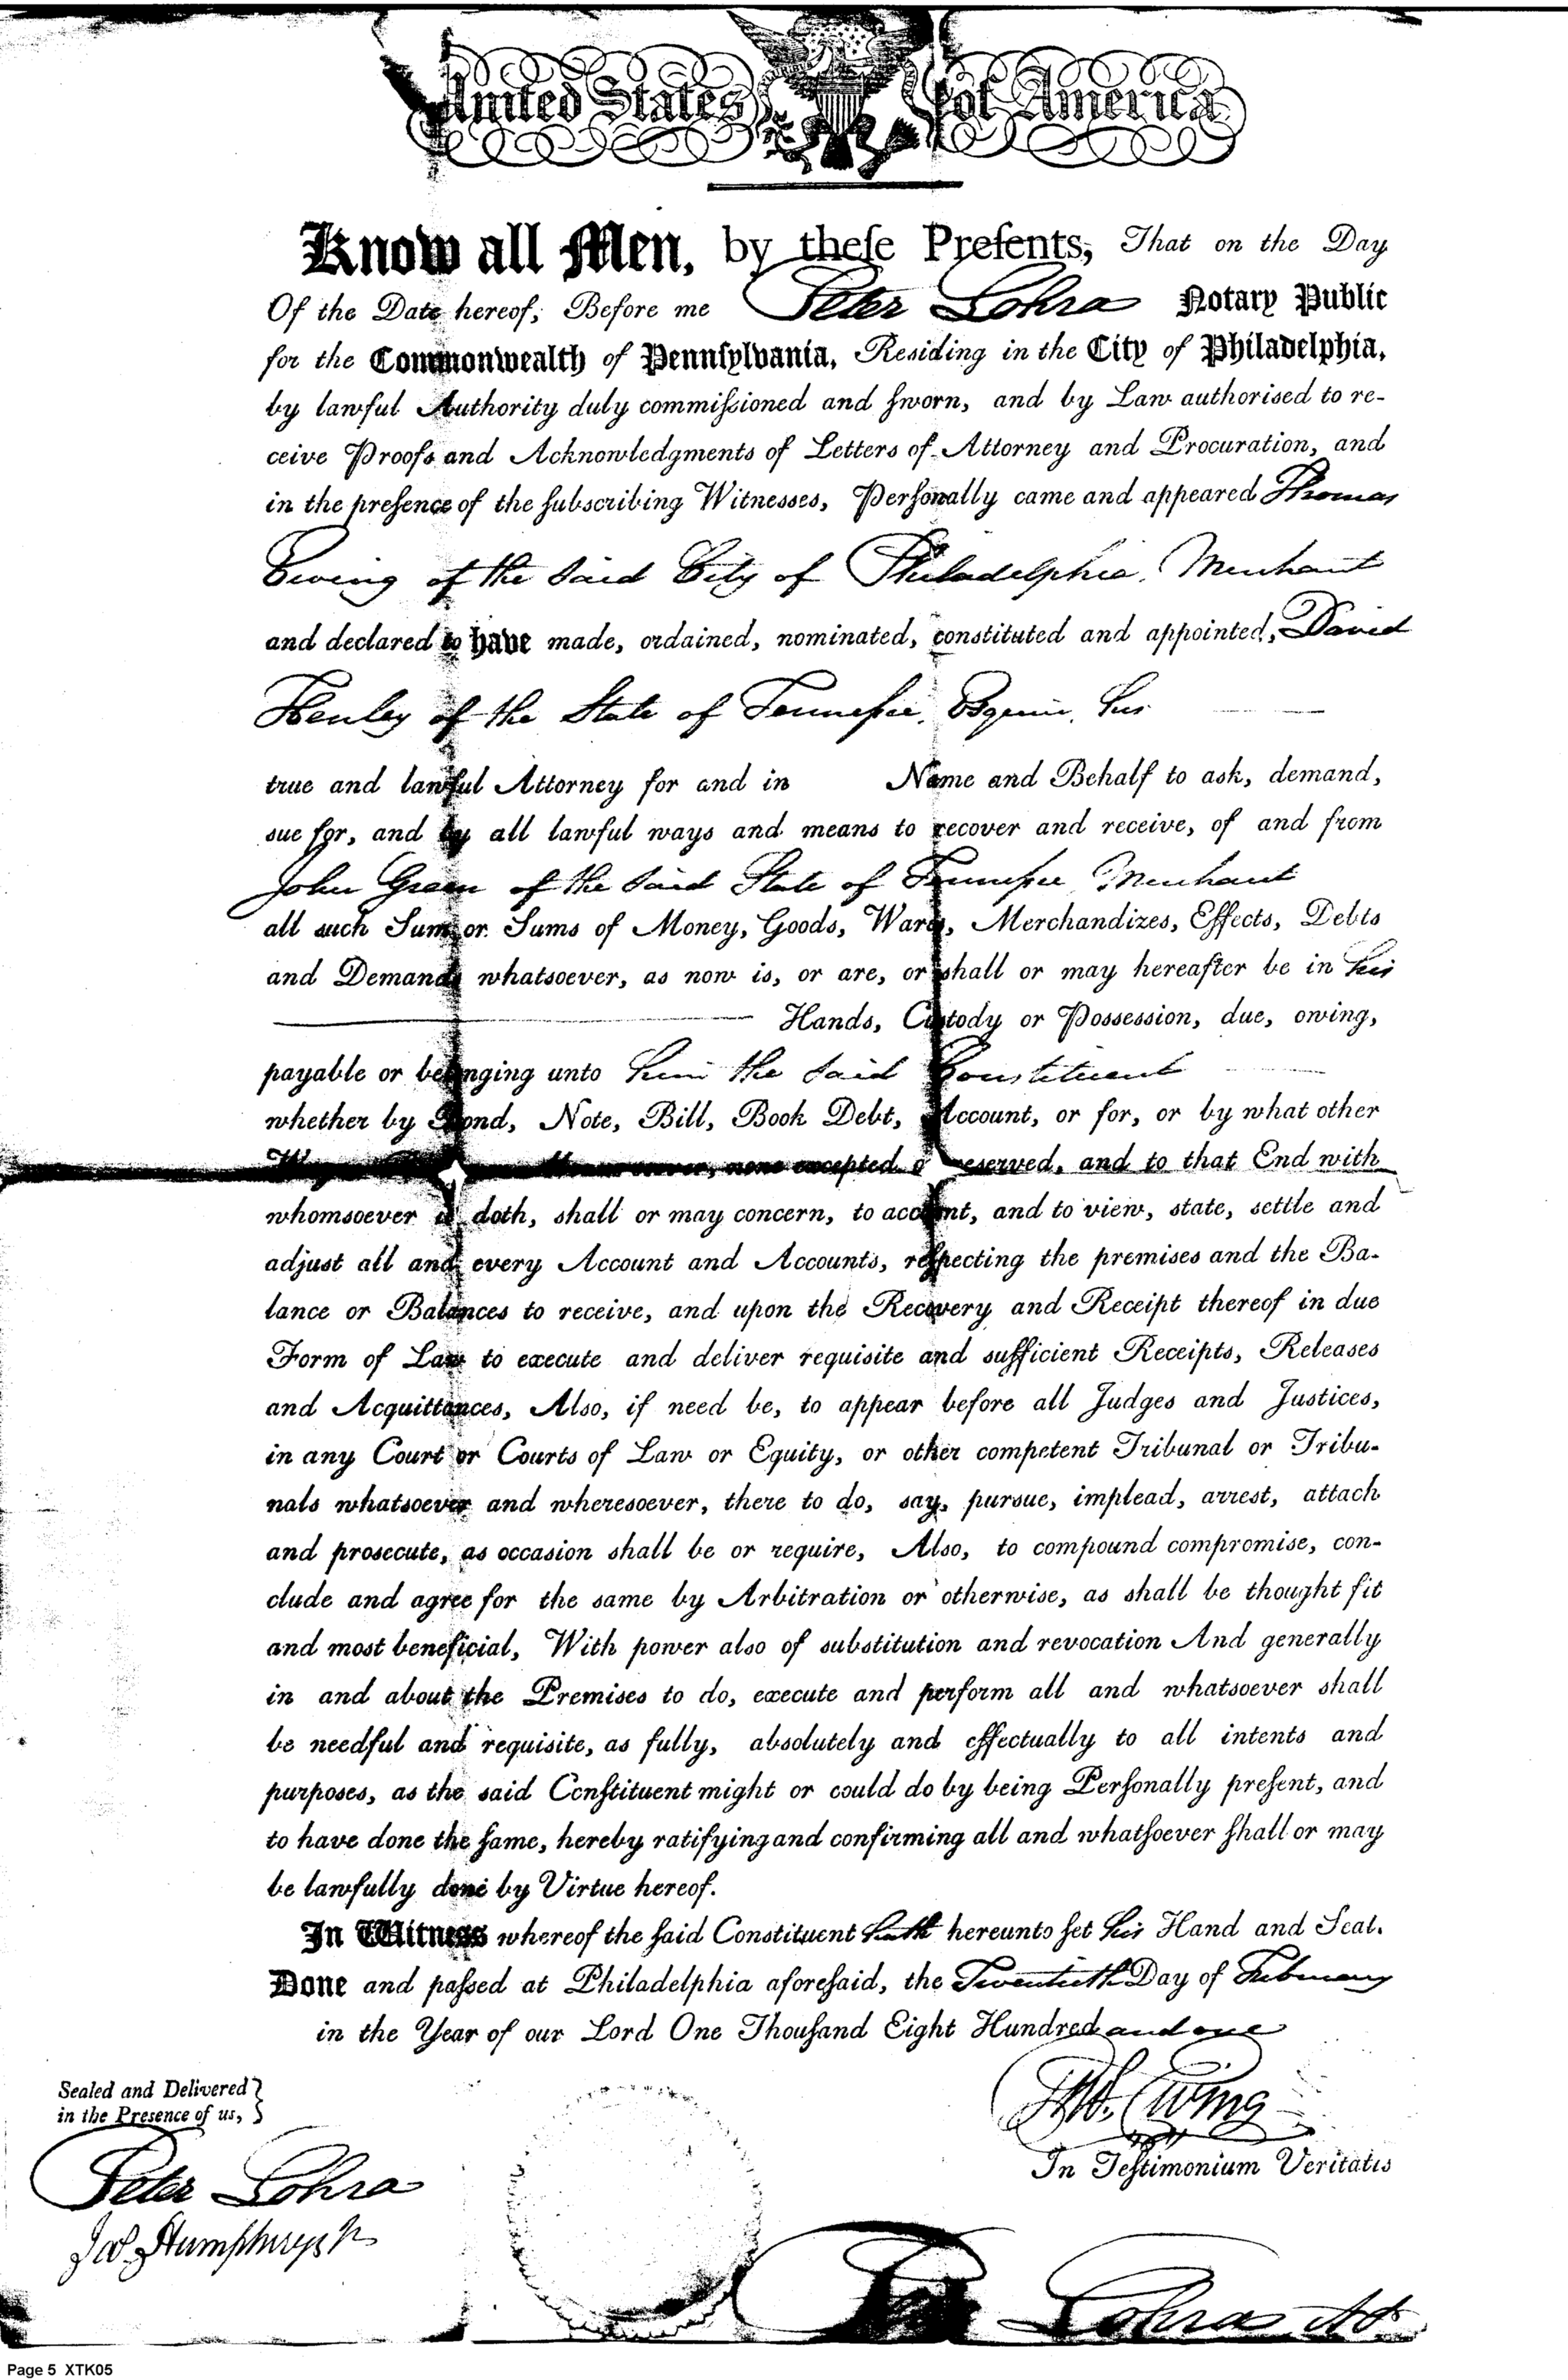 United States of America
Know all Men, by theſe Preſents, That on the Day
Of the Date hereof, Before me Peter Lohra Notary Public
for the Commonwealth of Pennſylvania, Residing in the City of Philadelphia,
by lawful Authority duly commiſsioned and ſworn, and by Law authorised to re-
ceive Proofs and Acknowledgments of Letters of Attorney and Procuration, and
in the preſence of the ſubscribing Witnesses, Perſonally came and appeared Thomas
Ewing of the said City of Philadelphia, Merchant
and declared to have made, ordained, nominated, constituted and appointed, David
Henley of the State of Tenneſsee, Esquire, his
true and lawful Attorney for and in Name and Behalf to ask, demand,
sue for, and by all lawful ways and means to recover and receive, of and from
John Green of the said State of Tenneſsee Merchant
all such Sum or Sums of Money, Goods, Wares, Merchandizes, Effects, Debts
and Demands whatsoever, as now is, or are, or shall or may hereafter be in his
Hands, Custody or Possession, due, owing,
payable or belonging unto him the said Constituent
whether by Bond, Note, Bill, Book Debt, Account, or for, or by what other
none excepted or reserved, and to that End with
whomsoever it doth, shall or may concern, to account, and to view, state, settle and
adjust all and every Account and Accounts, reſpecting the premises and the Ba-
lance or Balances to receive, and upon the Recovery and Receipt thereof in due
Form of Law to execute and deliver requisite and sufficient Receipts, Releases
and Acquittances, Also, if need be, to appear before all Judges and Justices,
in any Court or Courts of Law or Equity, or other competent Tribunal or Tribu-
nals whatsoever and wheresoever, there to do, say, pursue, implead, arrest, attach
and prosecute, as occasion shall be or require, Also, to compound compromise, con-
clude and agree for the same by Arbitration or otherwise, as shall be thought fit
and most beneficial, With power also of substitution and revocation And generally
in and about the Premises to do, execute and perform all and whatsoever shall
be needful and requisite, as fully, absolutely and effectually to all intents and
purposes, as the said Conſtituent might or could do by being Perſonally preſent, and
to have done the ſame, hereby ratifying and confirming all and whatſoever ſhall or may
be lawfully done by Virtue hereof.
In Witness whereof the ſaid Constituent hath hereunto ſet his Hand and Seal.
Done and paſsed at Philadelphia aforeſaid, the Twentieth Day of February
in the Year of our Lord One Thouſand Eight Hundred and one
Sealed and Delivered
in the Presence of us,
Thos. Ewing
In Teſtimonium Veritatis
Peter Lohra
Jas. Humphreys Jr
Lohra
Page 5 XTK05